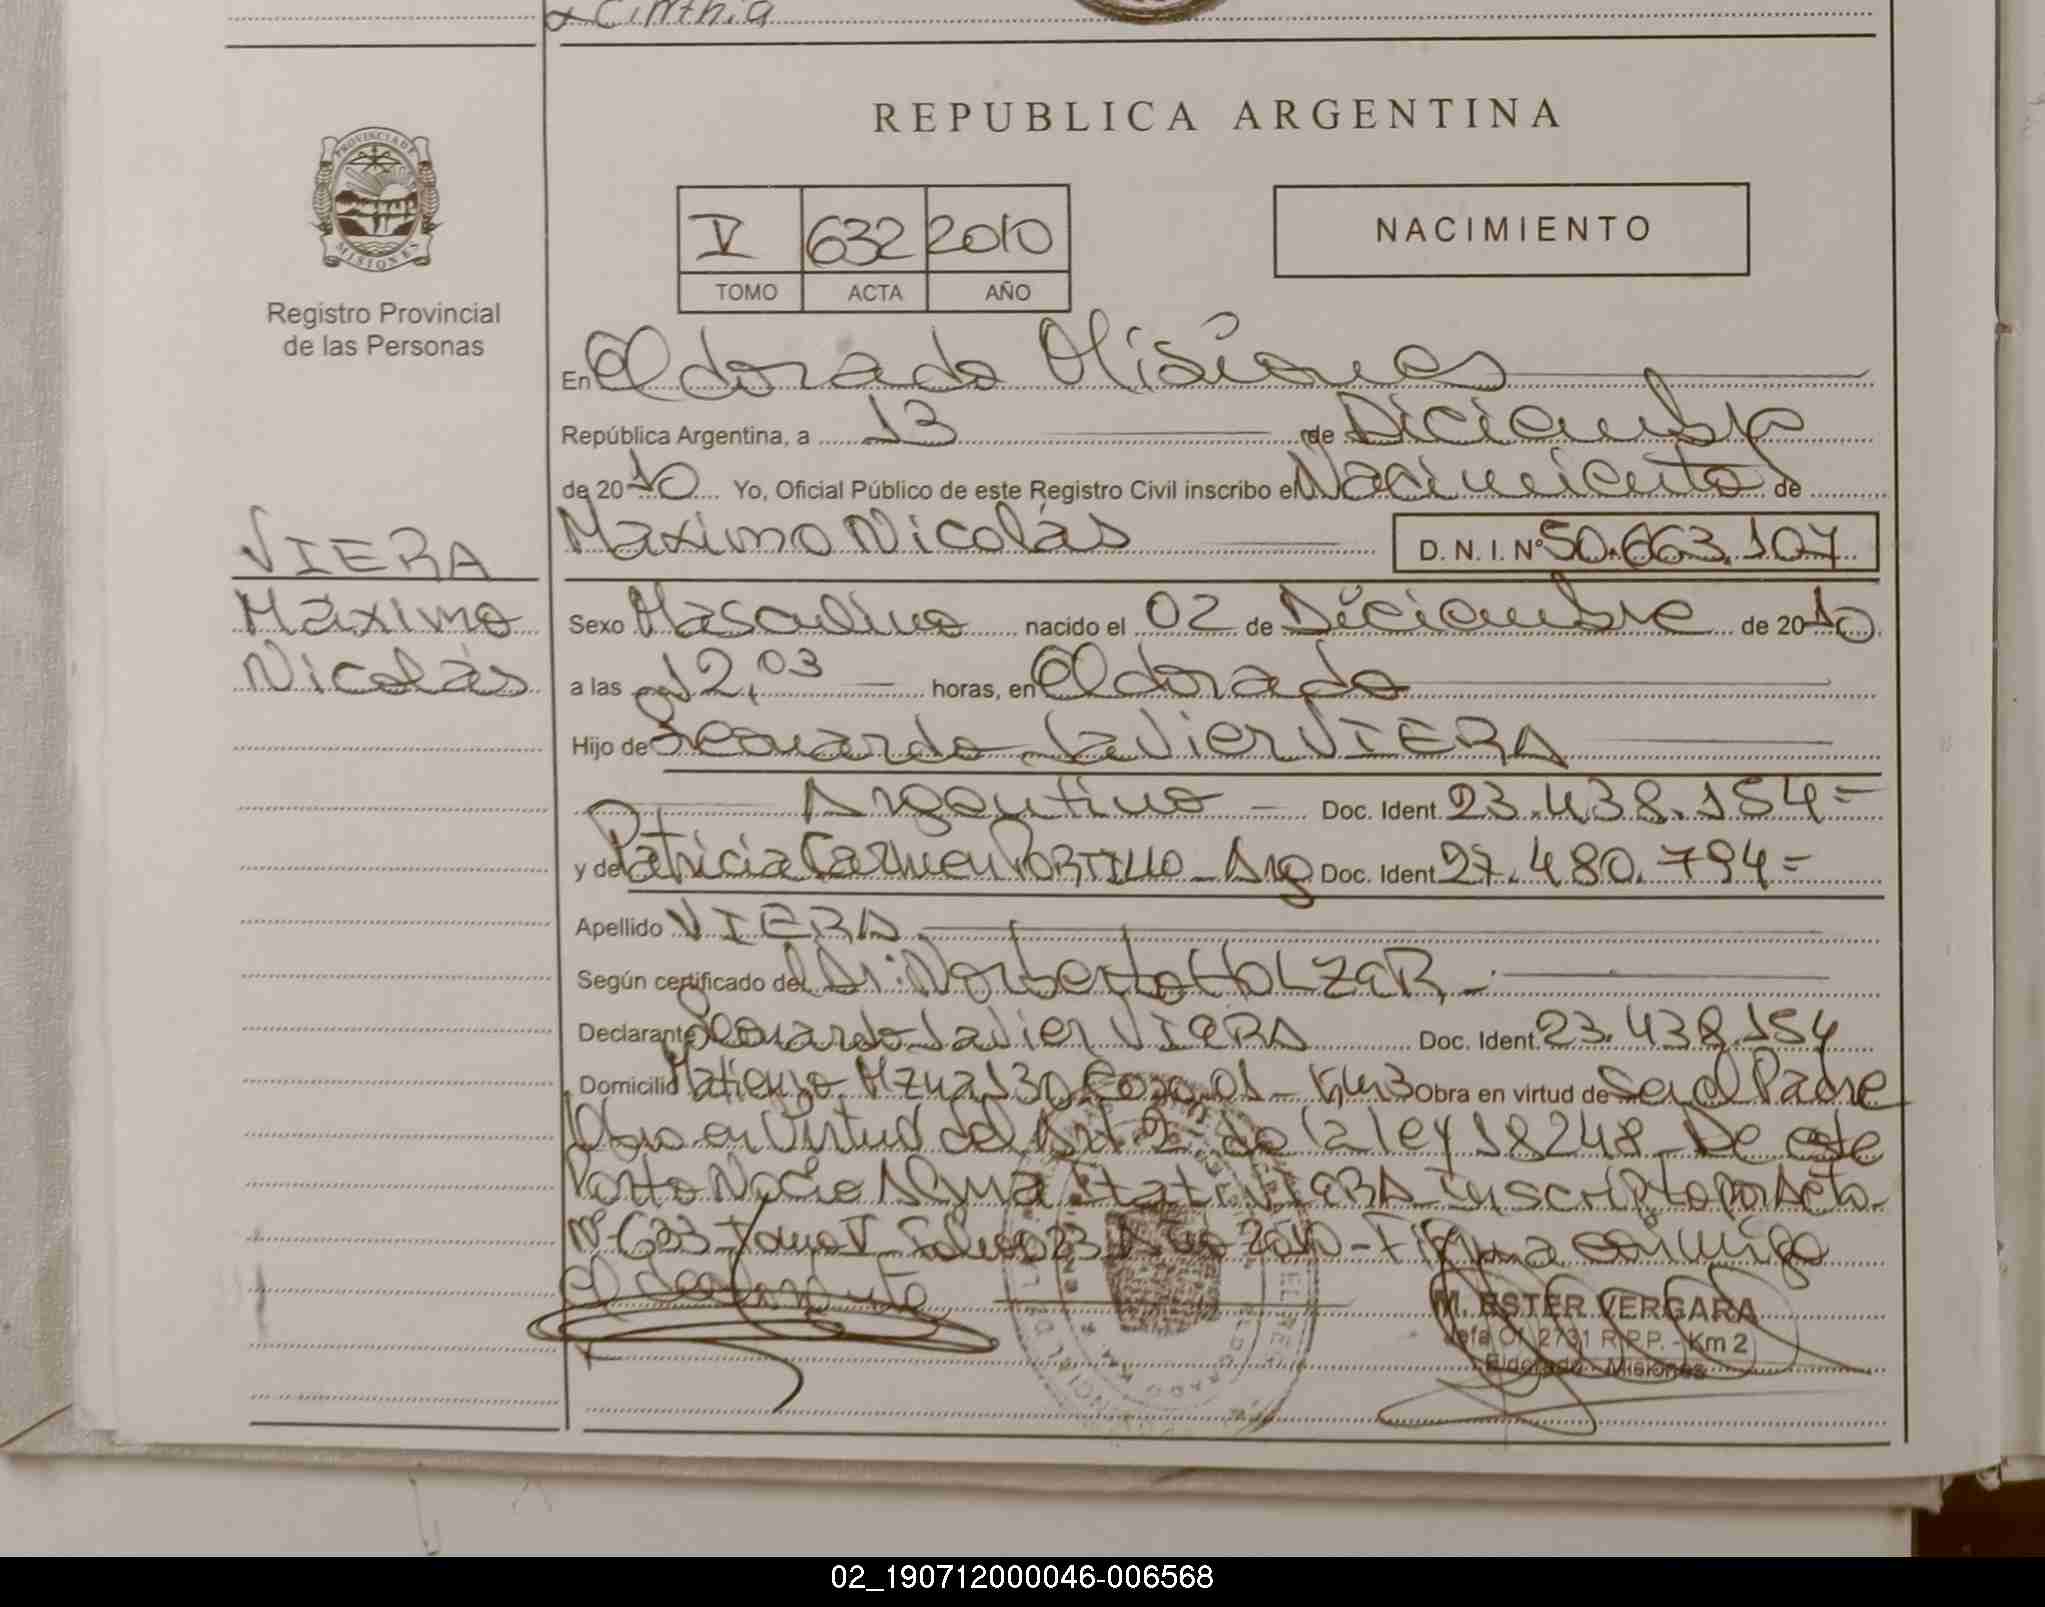 & Cinthia
REPUBLICA ARGENTINA
PROVINCIA DE
MISIONES
Registro Provincial
de las Personas
V 632 2010
TOMO ACTA AÑO
NACIMIENTO
En Eldorado Misiones
República Argentina, a 13 de Diciembre
de 2010 Yo, Oficial Público de este Registro Civil inscribo el Nacimiento de
Maximo Nicolás D. N. I. Nº 50.663.107
VIERA
Máximo
Nicolás
Sexo Masculino nacido el 02 de Diciembre de 2010
a las 12,03 horas, en Eldorado
Hijo de Leonardo Javier VIERA
Argentino Doc. Ident. 23.438.154=
y de Patricia Carmen PORTILLO - Arg Doc. Ident. 27.480.794=
Apellido VIERA
Según certificado del Dr: Norberto HOLZER -
Declarante Leonardo Javier VIERA Doc. Ident. 23.438.154
Domicilio Matienzo Mzna 130 Casa 01 - Km 3 Obra en virtud de Ser el Padre
Obra en Virtud del Art 2- de la ley 18248 - De este
Parto Nació Itati VIERA inscripto por Acta
Nº 633 Tomo V Folio 23 Año 2010 - Firma conmigo
el declarante
M. ESTER VERGARA
Jefa Of. 2731 R.P.P. - Km 2
Eldorado - Misiones
02_190712000046-006568